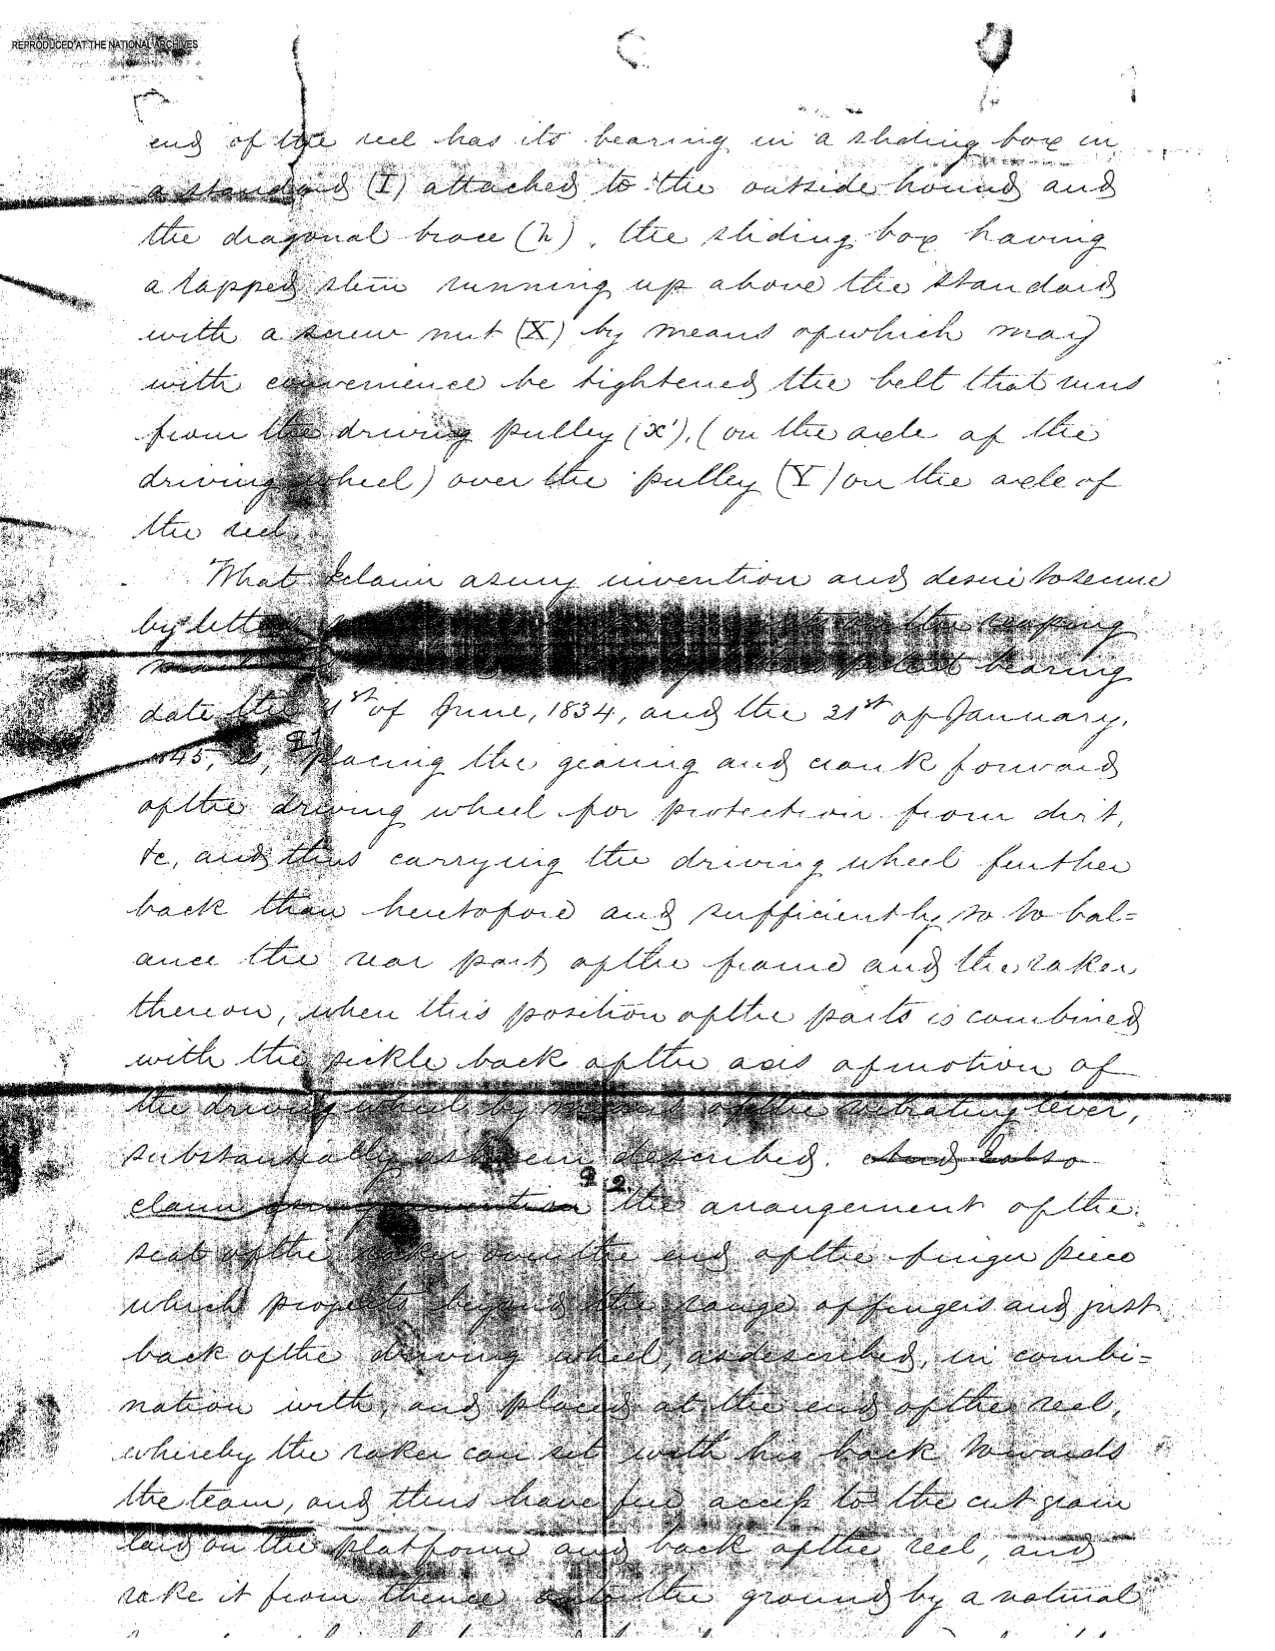 REPRODUCED AT THE NATIONAL ARCHIVES
end of the reel has its bearing in a sliding box in
a standard (I) attached to the outside hound and
the diagonal brace (h), the sliding box having
a tapped stem running up above the standard
with a screw nut (X) by means of which may
with convenience be tightened the belt that runs
from the driving pulley (x'), (on the axle of the
driving wheel) over the pulley (Y) on the axle of
the reel.
What I claim as my invention and desire to secure
by letters the reaping
patent bearing
date the 21st of June, 1834, and the 31st of January,
1845, is, placing the gearing and crank forward
of the driving wheel for protection from dirt,
&c, and thus carrying the driving wheel further
back than heretofore and sufficiently so to bal=
ance the rear part of the frame and the raker
thereon, when this position of the parts is combined
with the sickle back of the axis of motion of
the driving wheel by means of the vibrating lever,
substantially as herein described. And I also
claim as my invention the arrangement of the
seat of the raker over the end of the finger piece
which projects beyond the range of fingers and just
back of the driving wheel, as described, in combi=
nation with, and placed at the end of the reel,
whereby the raker can sit with his back towards
the team, and thus have free access to the cut grain
laid on the platform and back of the reel, and
rake it from thence onto the ground by a natural